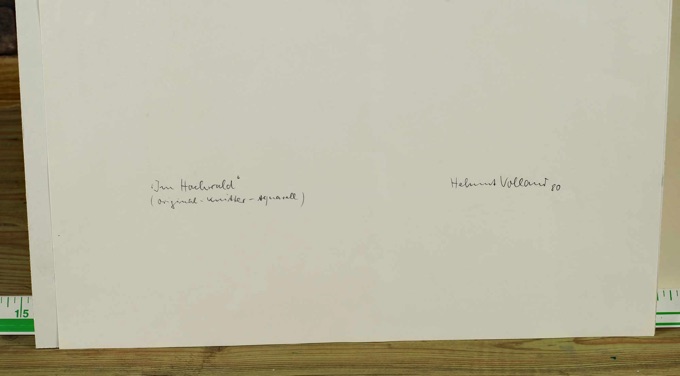 "Im Hochwald"
(Original-Knitter-Aquarell)
Helmut Volland 80
15